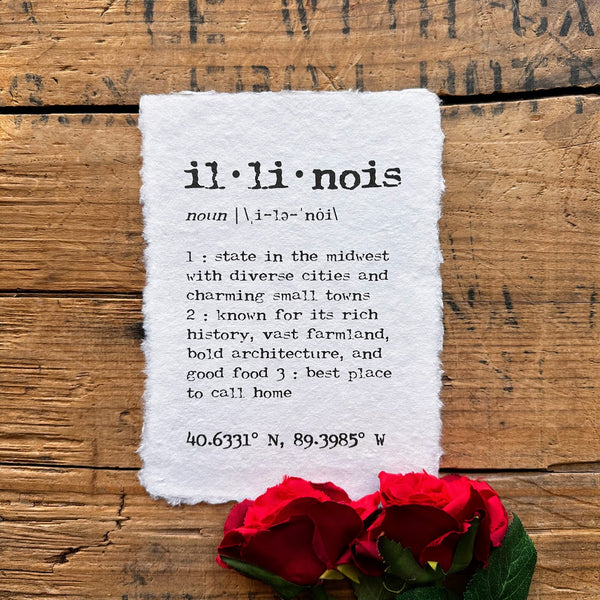 il·li·nois
noun | \ˌi-lə-ˈnȯi\
1 : state in the midwest
with diverse cities and
charming small towns
2 : known for its rich
history, vast farmland,
bold architecture, and
good food 3 : best place
to call home
40.6331° N, 89.3985° W